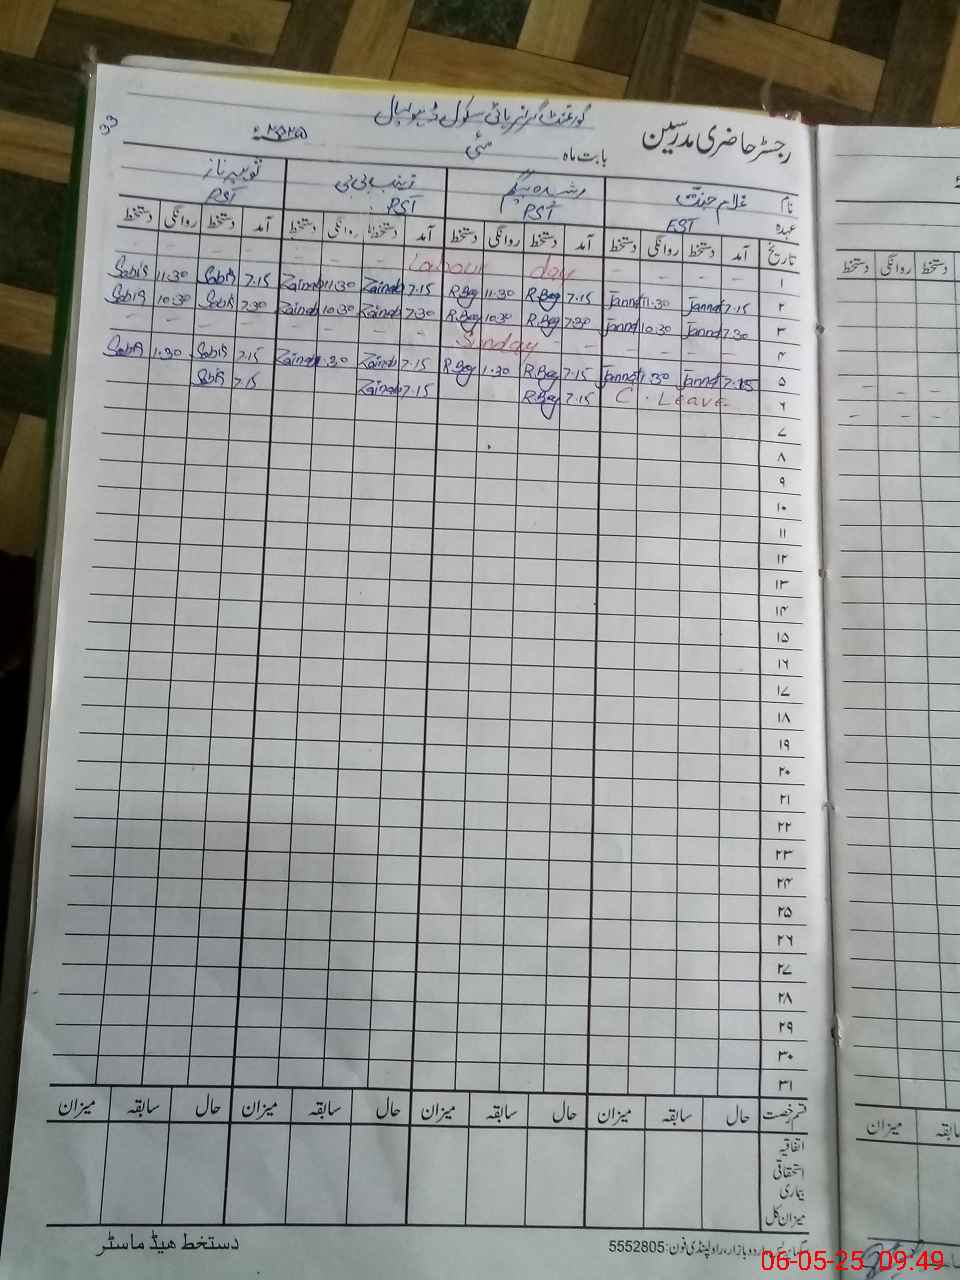 33
گورنمنٹ گرلز ہائی سکول ڈہوہپال
رجسٹر حاضری مدرسین
بابت ماہ مئی ۲۰۲۵ء
نام غلام جنت رشیدہ بیگم زینب بی بی ثوبیہ ناز
عہدہ EST PST PST PST
تاریخ آمد دستخط روانگی دستخط آمد دستخط روانگی دستخط آمد دستخط روانگی دستخط آمد دستخط روانگی دستخط
۱ Labour day
۲ 7.15 Jannat 11.30 Jannat 7.15 R.Beg 11.30 R.Beg 7.15 Zainab 11.30 Zainab 7.15 Sobia 11.30 Sobia
۳ 7.30 Jannat 10.30 Jannat 7.30 R.Beg 10.30 R.Beg 7.30 Zainab 10.30 Zainab 7.30 Sobia 10.30 Sobia
۴ Sunday
۵ 7.15 Jannat 1.30 Jannat 7.15 R.Beg 1.30 R.Beg 7.15 Zainab 1.30 Zainab 7.15 Sobia 1.30 Sobia
۶ C. Leave 7.15 R.Beg 7.15 Zainab 7.15 Sobia
۷
۸
۹
۱۰
۱۱
۱۲
۱۳
۱۴
۱۵
۱۶
۱۷
۱۸
۱۹
۲۰
۲۱
۲۲
۲۳
۲۴
۲۵
۲۶
۲۷
۲۸
۲۹
۳۰
۳۱
قسم رخصت حال سابقہ میزان حال سابقہ میزان حال سابقہ میزان حال سابقہ میزان
اتفاقیہ
استحقاقی
بیماری
میزان کل
اردو بازار، راولپنڈی فون: 5552805
دستخط ھیڈ ماسٹر
دستخط روانگی دستخط
میزان سابقہ
06-05-25 09:49